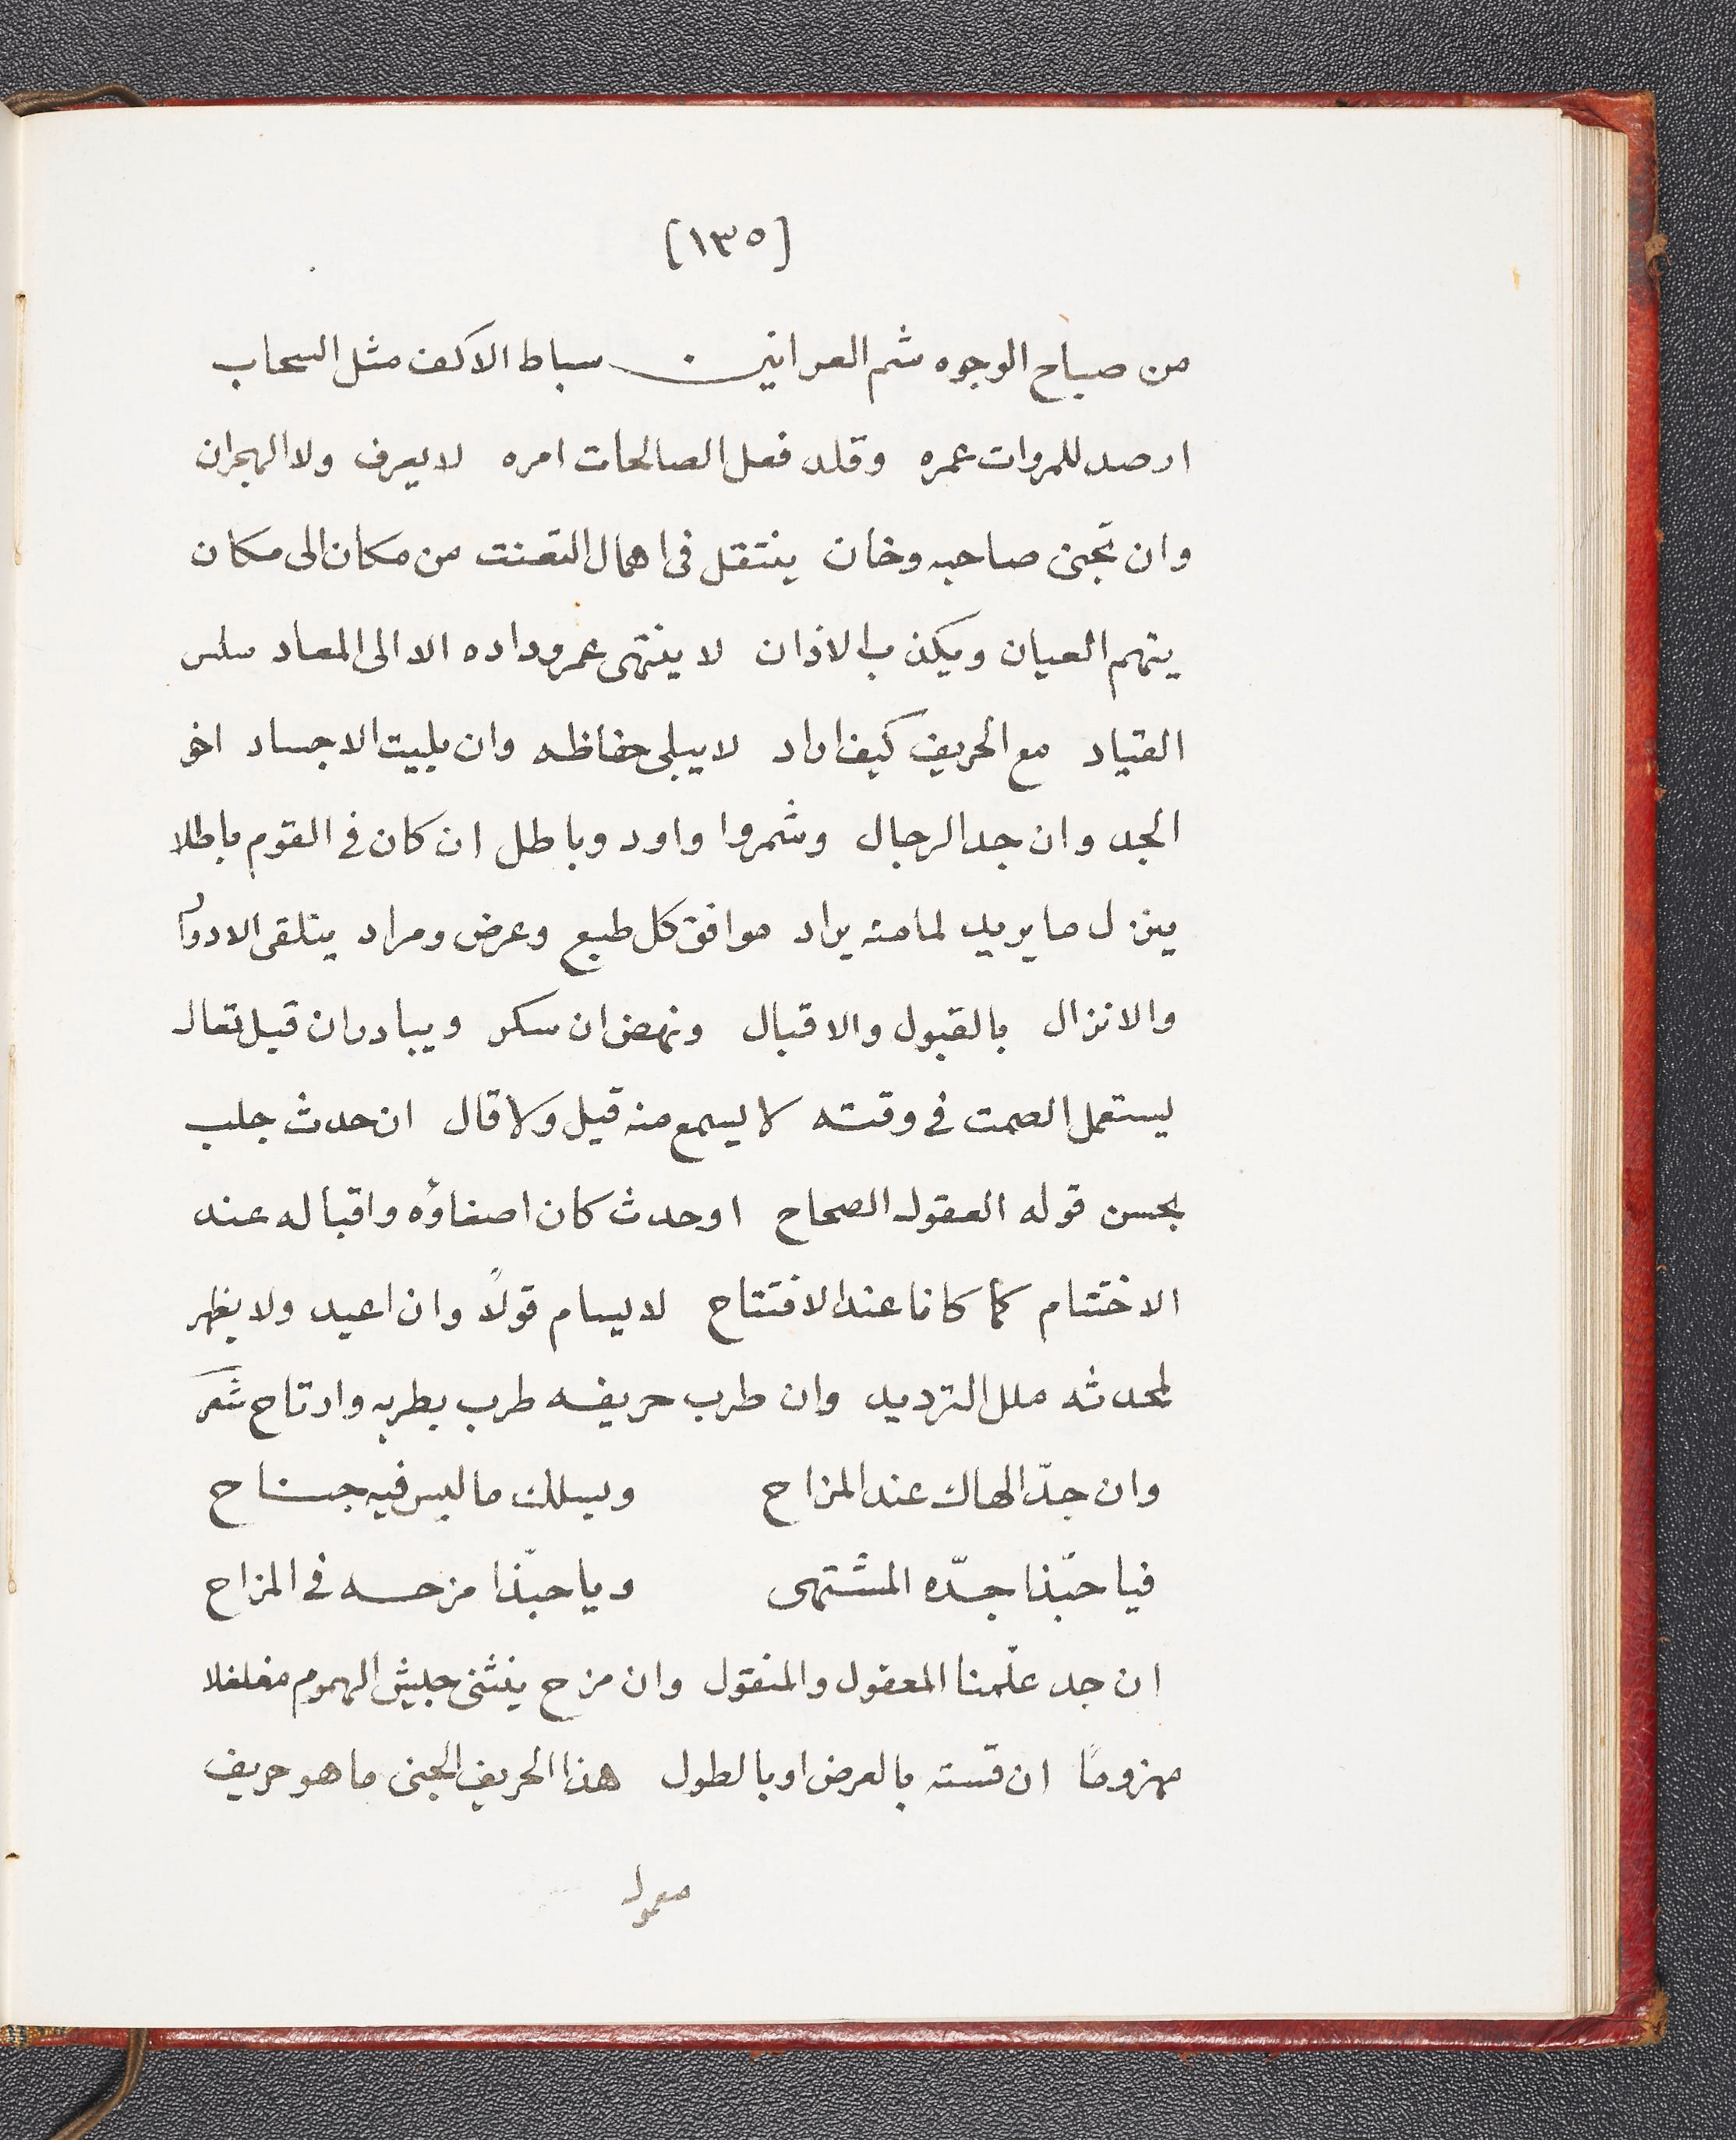 [١٣٥]
من صباح الوجوه شم العرانين سباط الاكف مثل السحاب
ارصد للمروات عمره وقلد فعل الصالحات امره لا يعرف ولا الهجران
وان تجنى صاحبه وخان ينتقل فى اهمال التعنت من مكان الى مكان
يتهم العيان ويكذب الاذان لا ينتهى عمر وداده الا الى المعاد سلس
القياد مع الحريف كيف اراد لا يبلى حفاظه وان بليت الاجساد اخو
الجد وان جد الرجال وشمروا واود وباطل ان كان فى القوم باطلا
ينزل ما يريد لما منه يراد موافق كل طبع وعرض ومراد يتلقى الادوار
والانزال بالقبول والاقبال ونهض ان سكر ويبادر ان قيل تعال
يستعمل الصمت فى وقته لا يسمع منه قيل ولا قال ان حدث جلب
بحسن قوله العقول الصحاح او حدث كان اصغاؤه واقباله عند
الاختتام كما كانا عند الافتتاح لا يسام قولاً وان اعيد ولا يظهر
لمحدثه ملل الترديد وان طرب حريفه طرب بطربه وارتاح شعر
وان جدّ الهاك عند المزاح ويسلك ما ليس فيه جناح
فيا حبّذا جدّه المشتهى ويا حبّذا مزحه فى المزاح
ان جد علّمنا المعقول والمنقول وان مزح ينثنى جيش الهموم مغلغلا
مهزوماً ان قسته بالعرض او بالطول هذا الحريف الجنى ما هو حريف
معمول